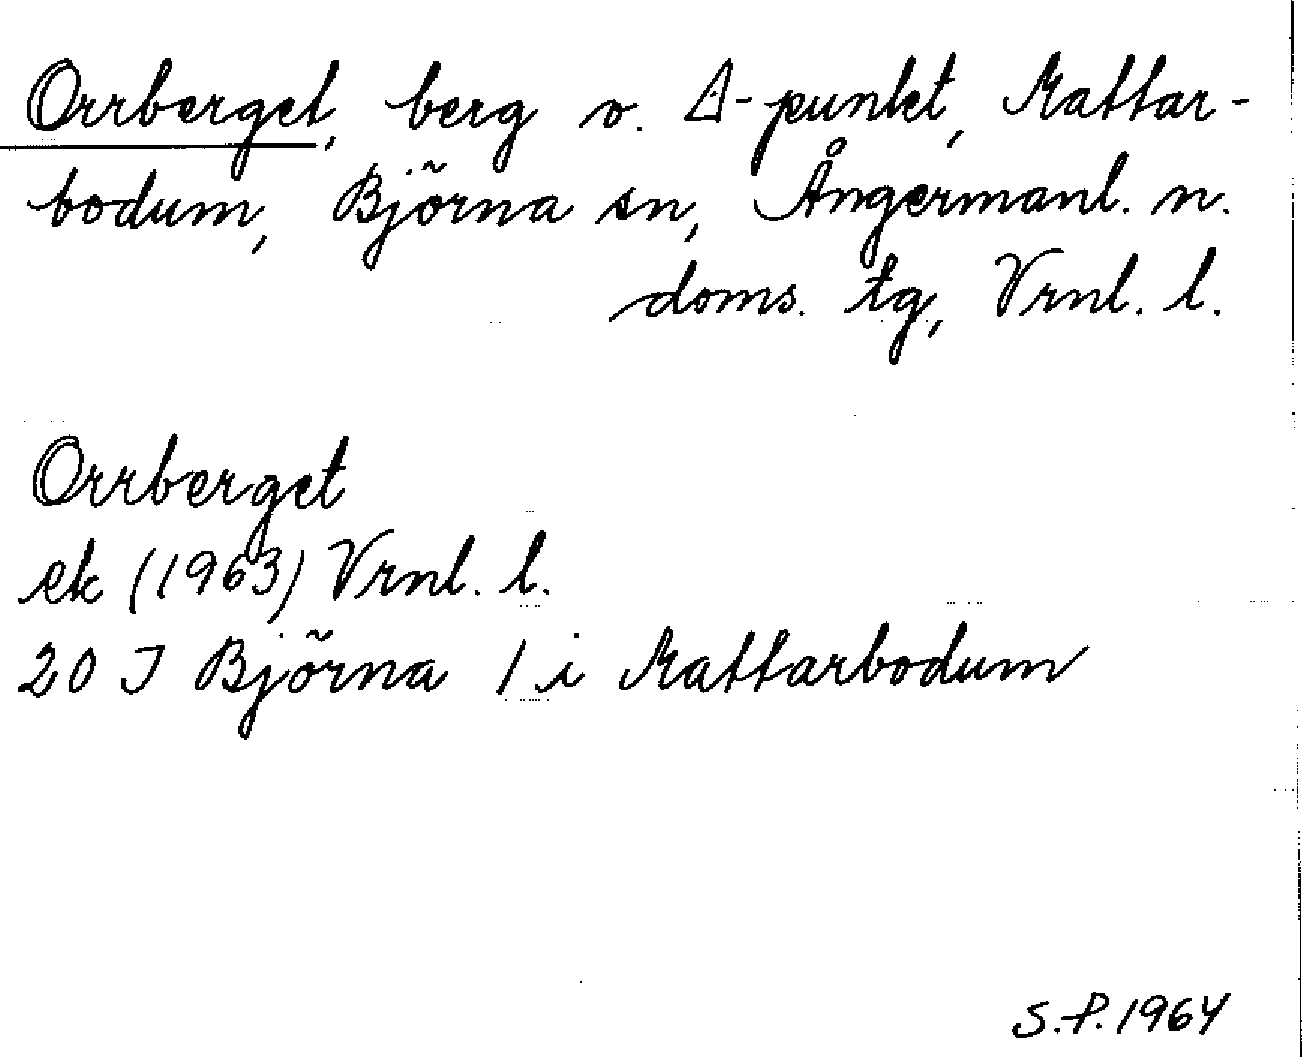 Orrberget, berg o. ∆-punkt, Mattar-
bodum, Björna sn, Ångermanl. n.
doms. tg, Vrnl. l.
Orrberget
ek (1963) Vrnl. l.
20 I Björna 1 i Mattarbodum
S.P. 1964